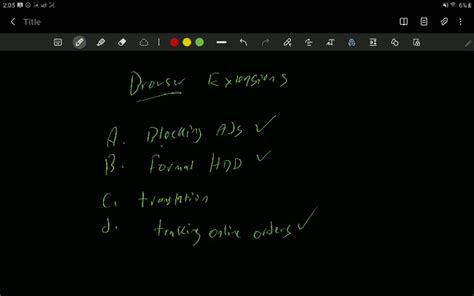 2:05 6%
Title
Browser Extensions
A. Blocking ADs ✓
B. Format HDD ✓
C. translation
d. tracking online orders ✓